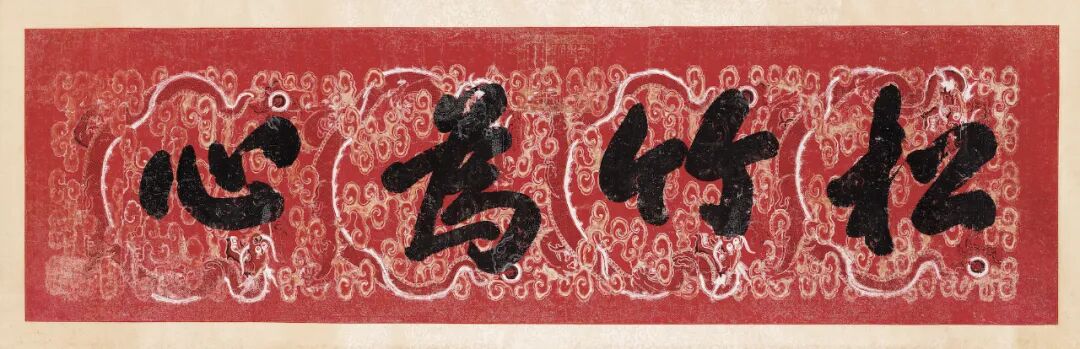 松竹為心